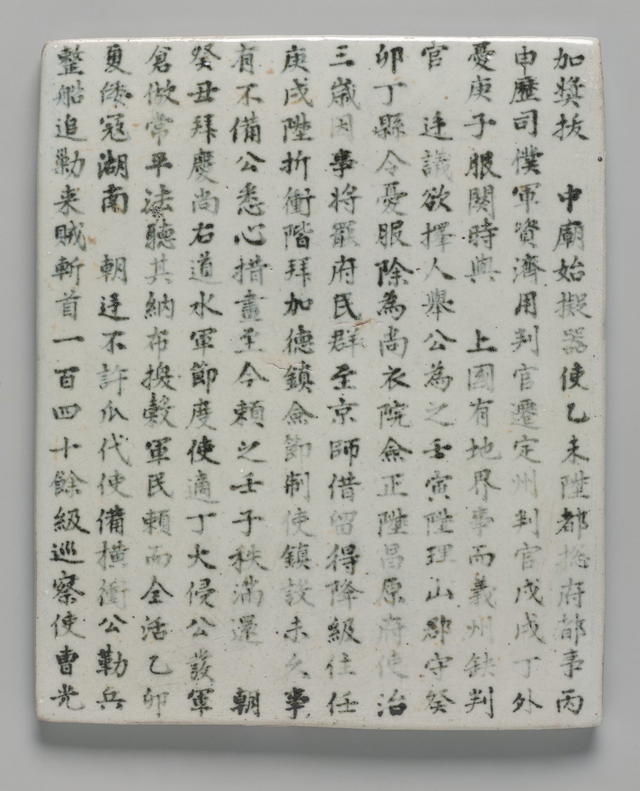 加奬拔　中廟始擬器使乙未陞都捴府都事丙
申歷司㒒軍資濟用判官遷定州判官戊戌丁外
憂庚子服闋時與　上國有地界事而義州缺判
官　廷議欲擇人舉公為之壬寅陞理山郡守癸
卯丁縣令憂服除為尚衣院僉正陞昌原府使治
三歲因事將罷府民群至京師借留得降級仕任
庚戌陞折衝階拜加德鎮僉節制使鎮設未久事
有不備公悉心措畫至今賴之壬子秩滿還　朝
癸丑拜慶尚右道水軍節度使適丁大侵公發軍
倉倣常平法聽其納布換穀軍民賴而全活乙卯
夏倭寇湖南　朝廷不許瓜代使備橫衝公勒兵
整船追勦来賊斬首一百四十餘級巡察使曹光